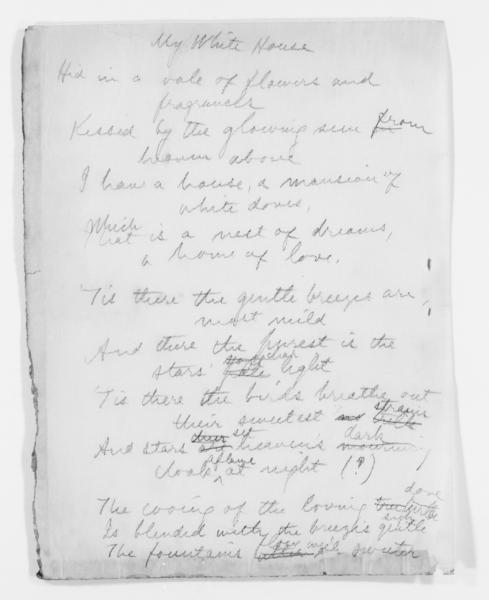 My White House
Hid in a vale of flowers and
fragrances
Kissed by the glowing sun from
heaven above
I have a house, a mansion of
white doves,
Which is a nest of dreams,
a home of love.
'Tis there the gentle breezes are
most mild
And there the purest is the
stars' light
'Tis there the birds breathe out
their sweetest strains
And stars set heaven's dark
cloak aflame at night (?)
The cooing of the loving dove
Is blended with the breeze's gentle
The fountains sweeter